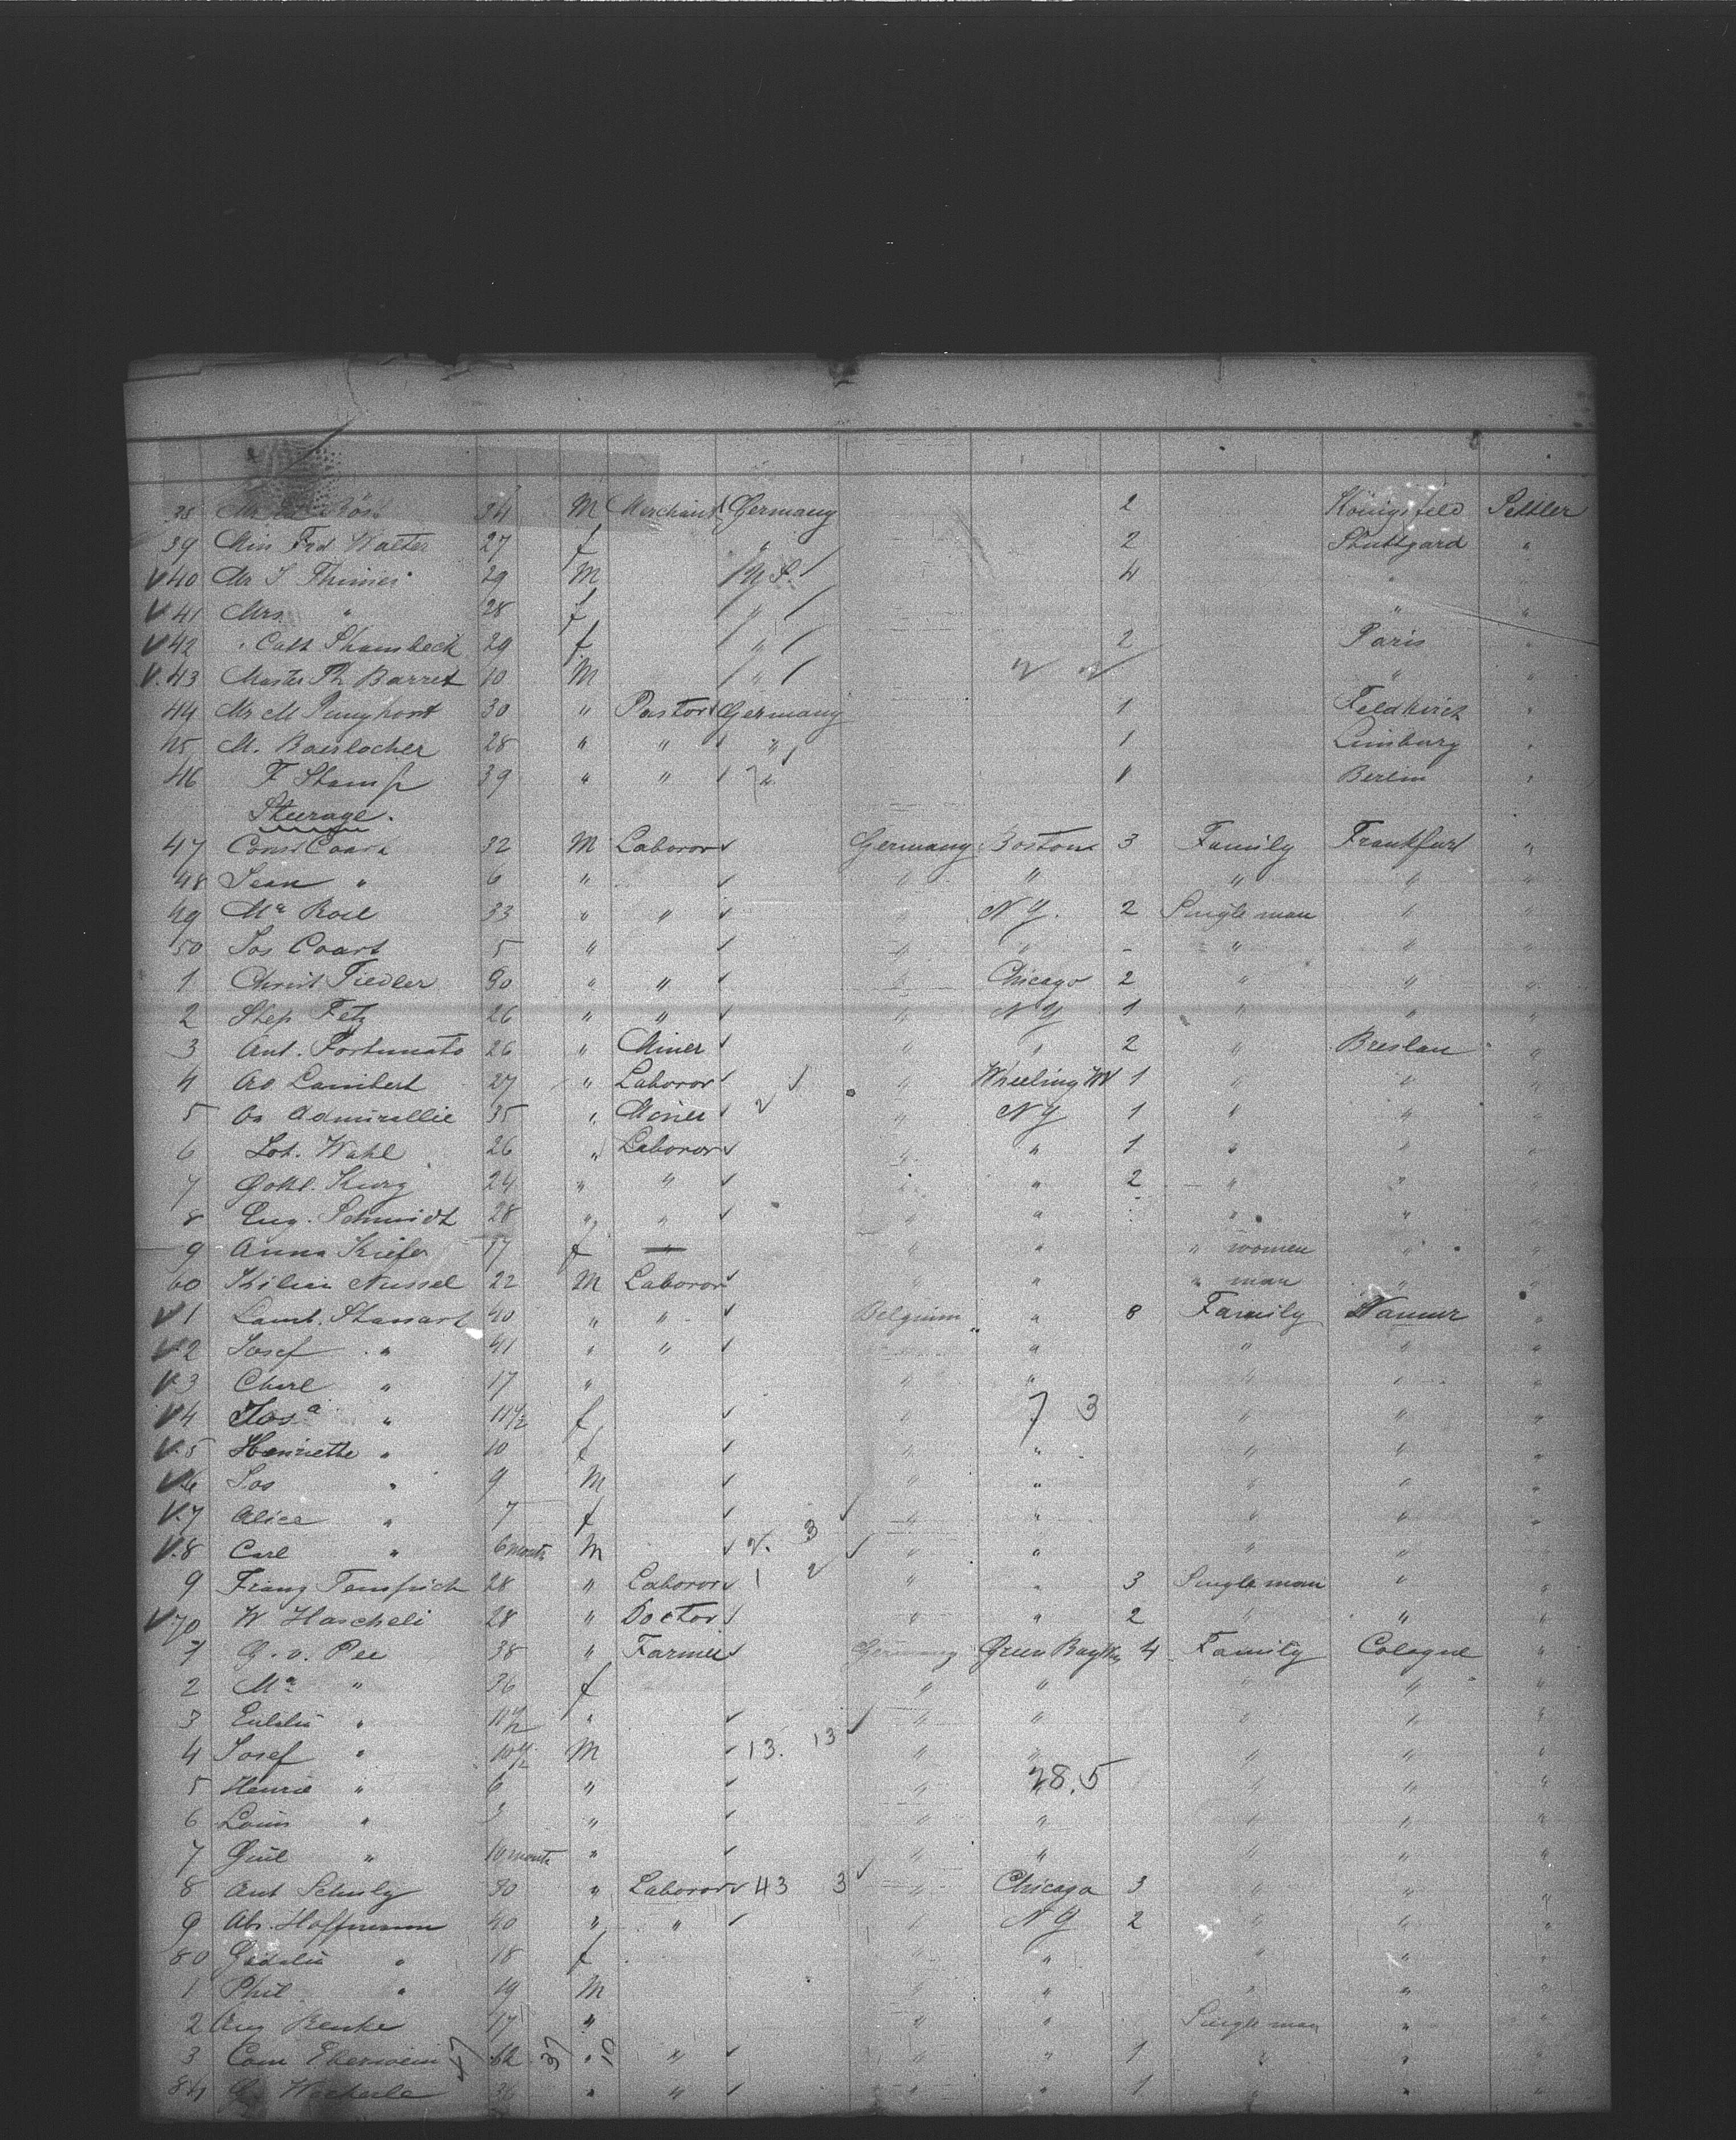 38 Mr Röst 34 M Merchant Germany 2 Königsfeld Settler
39 Miss Frd Walter 27 f " 2 Stuttgard "
V 40 Mr S 29 M U S. 4 " "
V 41 Mrs " 28 f " " "
V 42 " Cath 29 f " 2 Paris "
V. 43 Master Th Barret 10 M " " "
44 Mr M Junghont 30 " Pastor Germany 1 Feldkirch "
45 M. Baerlocher 28 " " " 1 Limburg "
46 F Stamp 39 " " " 1 Berlin "
Steerage.
47 Coart 32 M Laboror Germany Boston 3 Family Frankfurt "
48 Jean " 6 " " " " " "
49 Ma Roel 33 " " " N Y. 2 Single man " "
50 Jos Coart 5 " " " - " " "
1 Christ Fiedler 30 " " " Chicago 2 " " "
2 Step Fetz 26 " " " N Y 1 " " "
3 Ant. Fortunato 26 " Miner " " 2 " Breslau "
4 Ad Lambert 27 " Laboror " Wheeling WV 1 " " "
5 Admirallie 35 " Miner 2 " N Y 1 " " "
6 Joh. Wahl 26 " Laboror " " 1 " " "
7 Gottl. Kurz 24 " " " " 2 " " "
8 Eug. Schmidt 28 " " " " " " "
9 Anna Kiefer 17 f — " " " women " "
60 Kilian Nussel 22 M Laboror " " " man " "
V 1 Lamb. Stassart 40 " " Belgium " 8 Family Namur "
V 2 Josef " 41 " " " " " "
V 3 Charl " 17 " " " " " "
V 4 Josa " 11 1/2 f " 7 3 " " "
V. 5 Henriette " 10 f " " " " "
V 6 Jos " 9 M " " " " "
V. 7 Alice " 7 f 3 " " " " "
V. 8 Carl " 6 month M 2. " " " " "
9 Franz 28 " Laboror 1 2 " " 3 Single man " "
V 70 W Hascheli 28 " Doctor " " 2 " " "
1 G. v. Pee 38 " Farmer Germany Green Bay 4 Family Cologne "
2 Ma " 36 f " " " " "
3 " 11 1/2 " " " " " "
4 Josef " 10 1/2 M 13. 13 " " " " "
5 Henrie " 6 " " 28.5 " " "
6 Louis " 3 " " " " " "
7 Giul " 10 month " " " " " "
8 Ant Schulz 30 " Laboror 43 3 " Chicago 3 " " "
9 Ab. Hoffmann 40 " " " N Y 2 " " "
80 " 18 f " " " " "
1 Phil " 19 M " " " " "
2 Aug Renke 17 " " " Single man " "
3 Eberwein 47 62 37 " 10 " " " 1 " " "
84 G. 36 " " " " 1 " " "